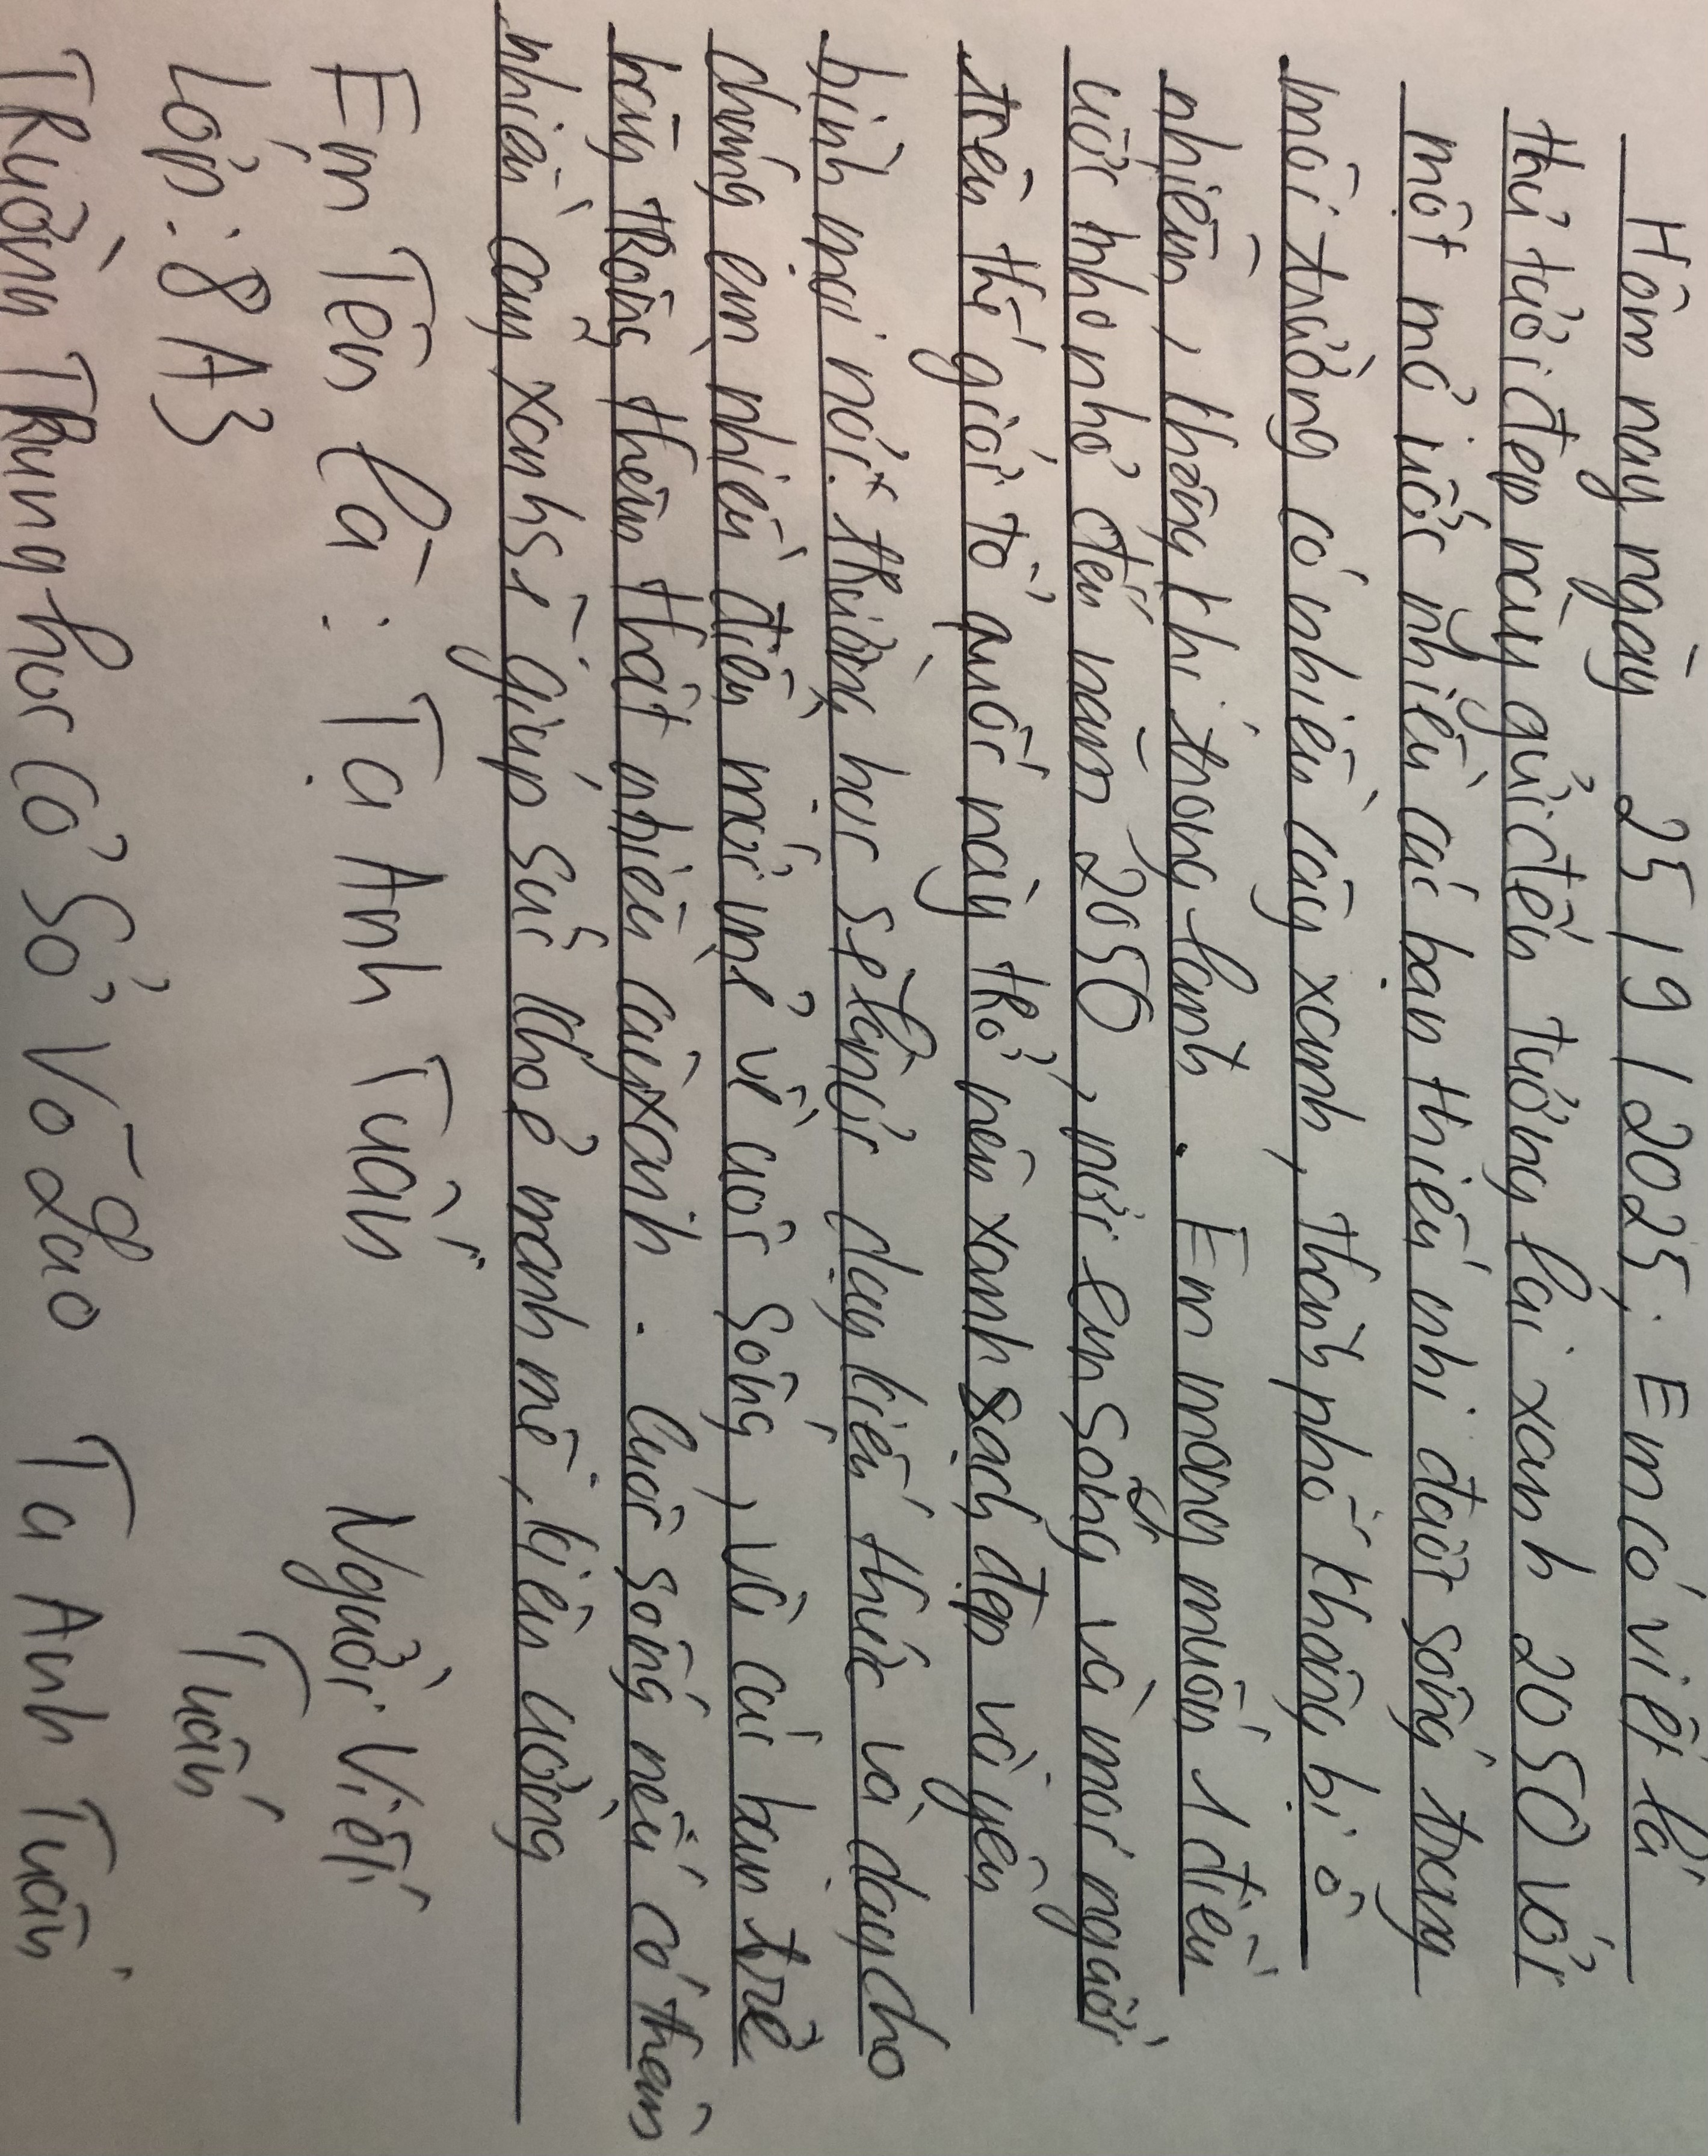 Hôm nay ngày 25/9/2025. Em có viết lá
thư tươi đẹp này gửi đến tương lai xanh 2050 với
một mơ ước nhiều các bạn thiếu nhi được sống trong
môi trường có nhiều cây xanh, thành phố không bị ô
nhiễm, không khí trong lành. Em mong muốn 1 điều
ước nho nhỏ đến năm 2050, nơi em sống và mọi người
trên thế giới tổ quốc này trở nên xanh sạch đẹp và yên
bình mọi nơi. trường học sẽ là nơi dạy kiến thức và dạy cho
chúng em nhiều điều mới mẻ về cuộc sống, và các bạn trẻ
hãy trồng thêm thật nhiều cây xanh. Cuộc sống nếu có thêm
nhiều cây xanh sẽ giúp sức khoẻ mạnh mẽ, kiên cường
Em Tên là: Tạ Anh Tuấn Người Viết
Lớp: 8A3 Tuấn
TRường TRung học Cơ Sở Võ Lao Tạ Anh Tuấn